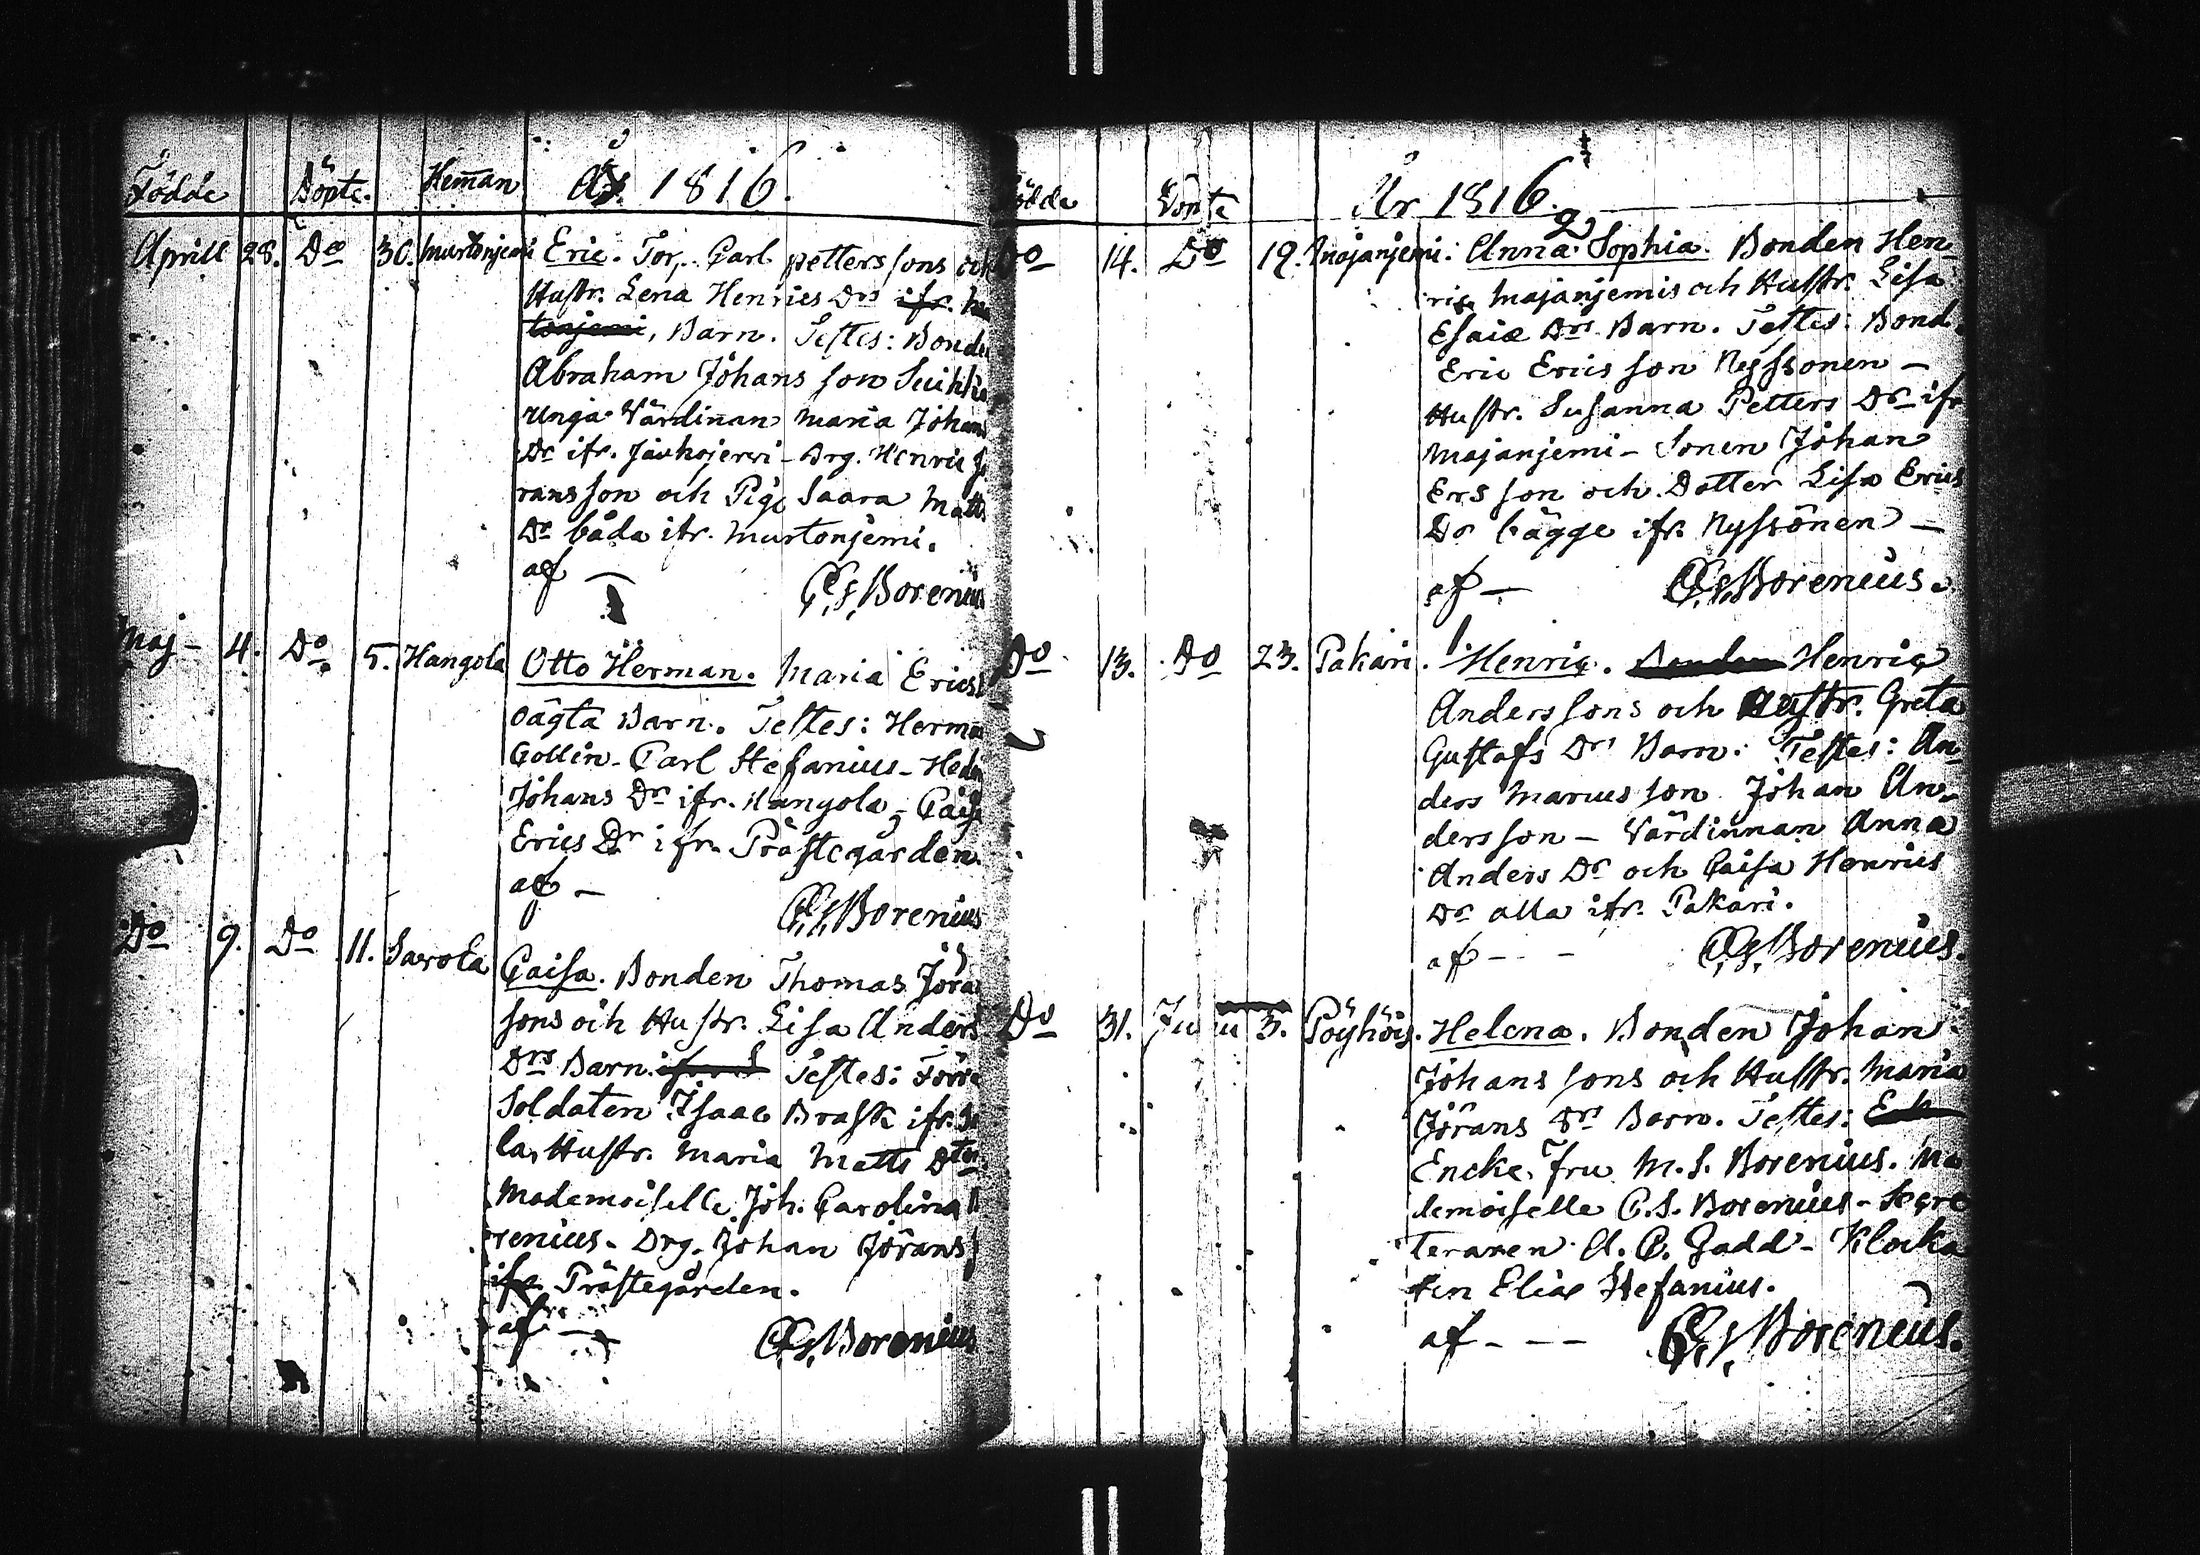 Födde Döpte. Hem̄an År 1816.
Aprill 28. Do 30. Murtonjemi Eric. Torp. Carl Petters sons och
Hustr. Lena Henrics Drs ifr. Mur
tonjemi, Barn. Testes: Bonde
Abraham Johans son Suikki
unga Värdinnan Maria Johans
Dr ifr. Jauhojerwi - Drg. Henric Jö
rans son och Pige Saara Matts
Dr båda ifr. Murtonjemi.
af — C.G. Borenius
Maj - 4. Do 5. Hangola Otto Herman. Maria Erics
oägta Barn. Testes: Herman
Gollin - Carl Stefanius - Hedvi
Johans Dr ifr. Hangola - Caisa
Erics Dr ifr. Prästegården.
af - C.G. Borenius
Do 9. Do 11. Savola Caisa. Bonden Thomas Jörans
sons och Hustr. Lisa Anders
Drs Barn. Testes: Förre
Soldaten Isaac Brask ifr. Sa
la, Hustr. Maria Matts Dtr
Mademoiselle Joh. Carolina B
renius - Drg. Johan Jörans
ifr. Prästegården.
af — C.G. Borenius
Födde Döpte År 1816.
Do 14. Do 19. Majanjemi. Anna Sophia. Bonden Hen
rics Majanjemis och Hustr. Lisa
Esaiæ Drs Barn. Testes: Bond.
Eric Erics son Nyssonen —
Hustr. Susanna Petters Dr ifr
Majanjemi - Sonen Johan
Ers son och Dotter Lisa Erics
Dr bägge ifr. Nyssönen —
af — C.G. Borenius.
Do 13. Do 23. Pakari. Henric. Bonden Henric
Anders sons och Hustr. Greta
Gustafs Drs Barn. Testes: An
ders Marcus son Johan An
ders son - Värdinnan Anna
Anders Dr och Caisa Henrics
Dr alla ifr. Pakari.
af - - C.G. Borenius.
Do 31. Junii 3. Pöyhöis. Helena. Bonden Johan
Johans sons och Hustr. Maria
Jörans Drs Barn. Testes:
Encke fru M.S. Borenius. Ma
demoiselle C.S. Borenius - Secre
teraren A.C. Gadd - Klocka
ren Elias Stefanius.
af - - - C.G. Borenius.